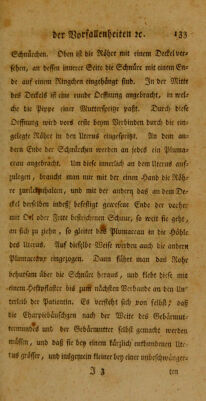 der Vorfallenheiten ꝛc. 133
Schnürchen. Oben ist die Röhre mit einem Deckel ver-
sehen, an dessen innerer Seite die Schnüre mit einem En-
de auf einen Ringchen eingehängt sind. In der Mitte
des Deckels ist eine runde Oeffnung angebracht, in wel-
che die Pippe einer Mutterspritze paßt. Durch diese
Oeffnung wird vors erste beym Verbinden durch die ein-
gelegte Röhre in den Uterus eingespritzt. An dem an-
dern Ende der Schnürchen werden an jedes ein Pluma-
ceau angebracht. Um diese innerlich an dem Uterus auf-
zulegen, braucht man nur mit der einen Hand die Röh-
re zurückzuhalen, und mit der andern das an dem De-
ckel derselben lindes oder feste gewesene Ende der vorher
mit Oel oder Fette bestrichenen Schnur, so weit sie geht,
an sich zu ziehn, so gleitet das Plumaceau in die Höhle
des Uterus. Auf dieselbe Weise werden auch die andern
Plumaceaux eingezogen. Dann führt man das Rohr
behutsam über die Schnüre heraus, und klebt diese mit
einem Heftpflaster bis zum nächsten Verbande an den Un-
terleib der Patientin. Es versteht sich von selbst; daß
die Charpiebäuschgen nach der Weite des Gebärmut-
termundes und der Gebärmutter selbst gemacht werden
müssen, und daß sie bey einem kürzlich entbundenen Ute-
rus grösser, und insgemein kleiner bey einer unbeschwänger-
J 3 ten